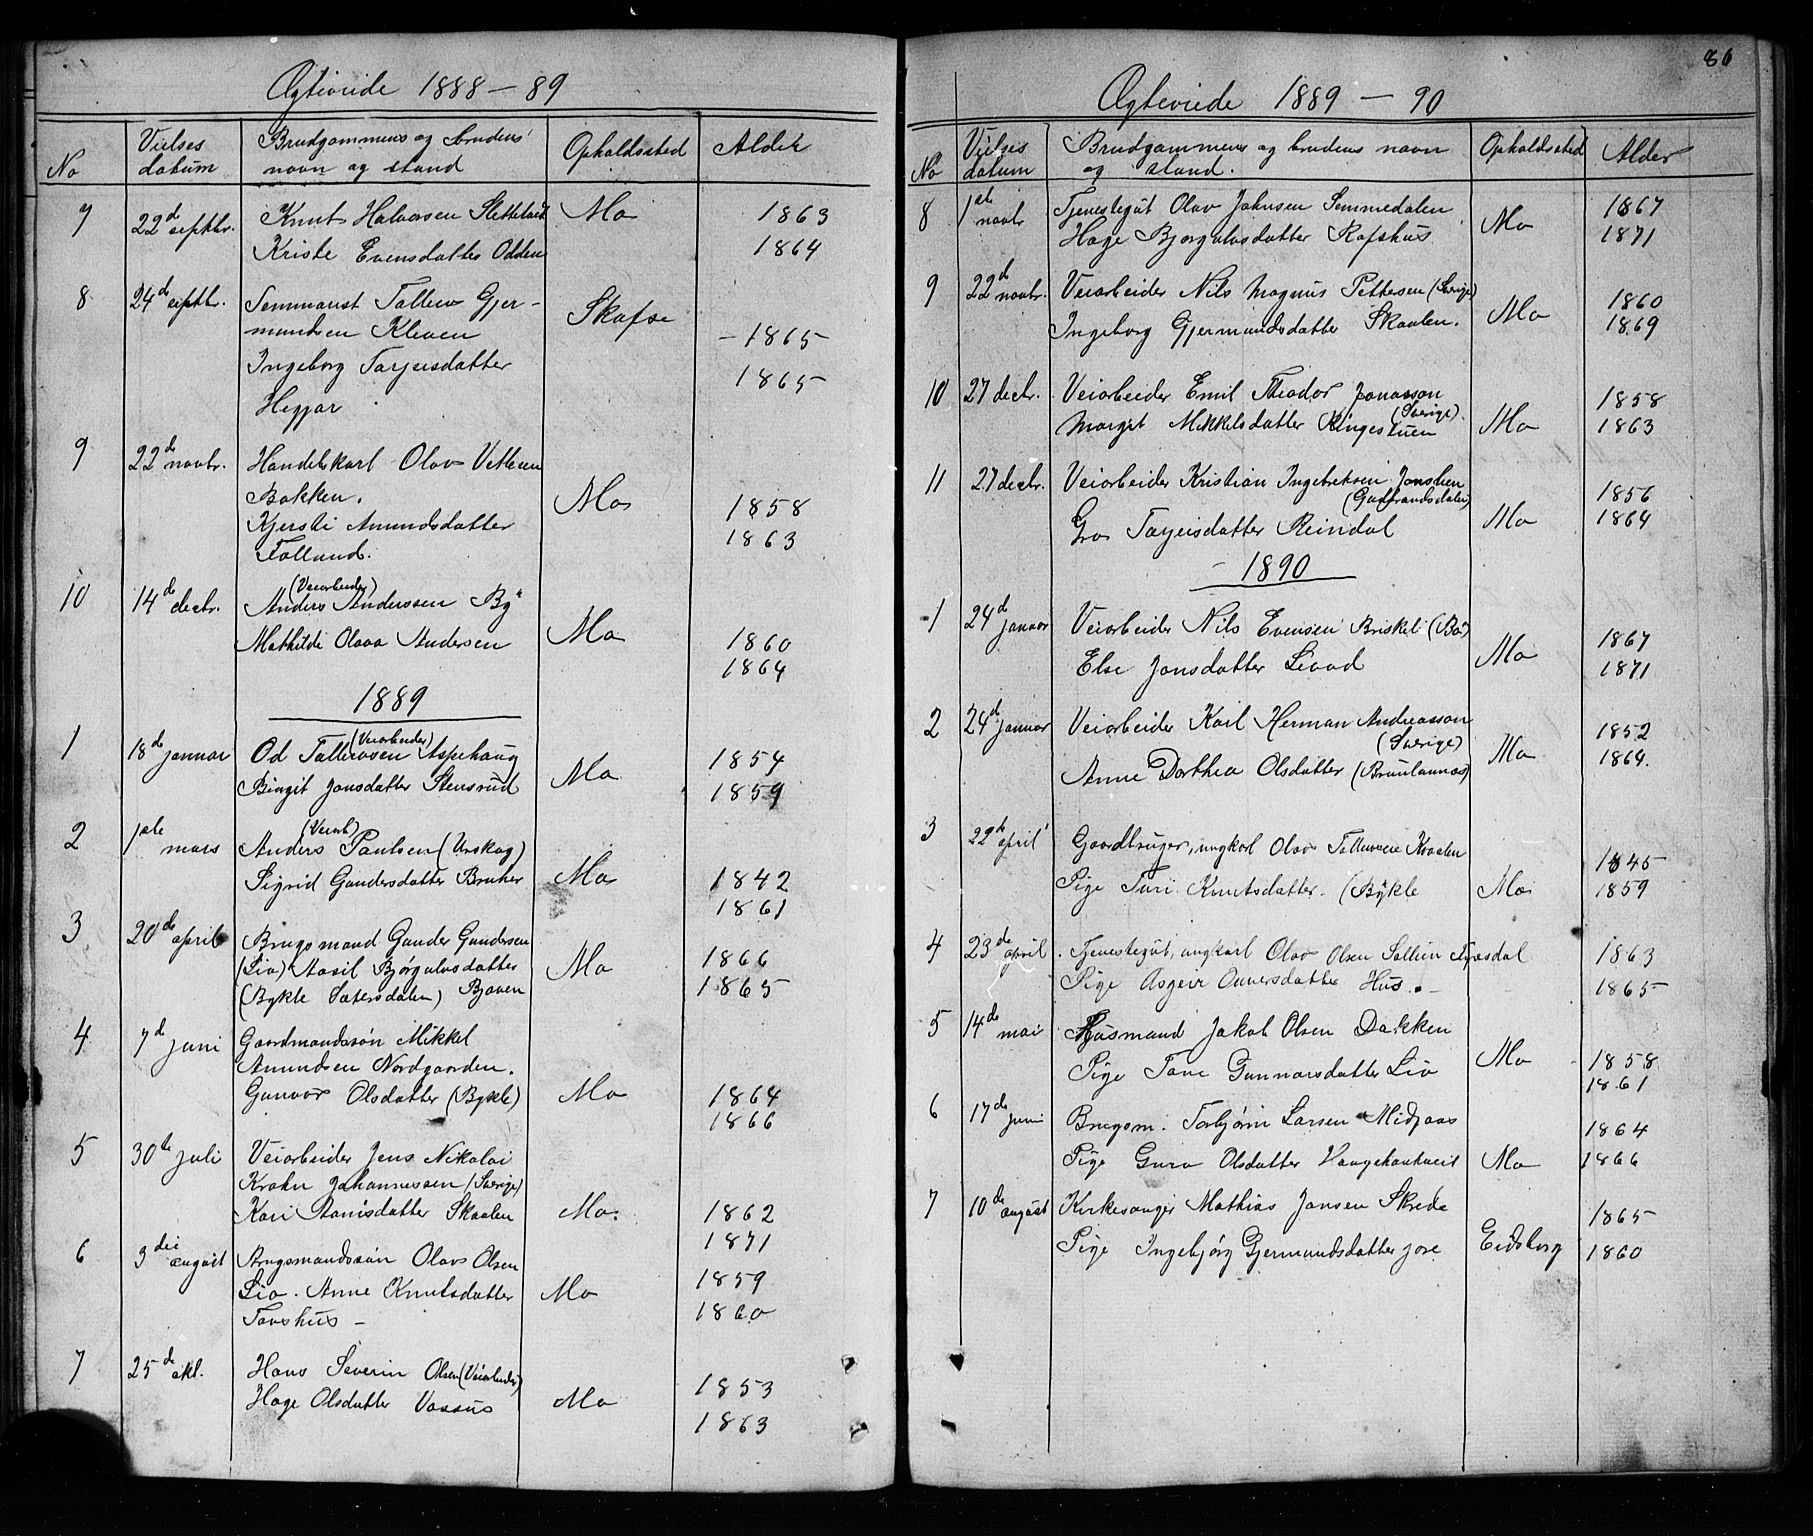 Ægteviede 1888-89
No
Vielses datum
Brudgommens og brudens navn og stand
Opholdssted
Alder
7 22d septbr. Knut Halvorsen Mo 1863
Kriste Evensdatter Odden 1864
8 24d septbr. Temmanst Tallev Gjer-
mundsen Kleven Skafse 1865
Ingeborg Tarjeisdatter 1865
Heggar
9 22d novbr. Handelskarl Olav Vetlesen
Bakken. Mo 1858
Kjersti Amundsdatter 1863
Folland.
10 14d decbr. (Veiarbeider)
Anders Anderssen By
Mathilde Olava Andersen Mo 1860
1864
1889
1 18d januar (Veiarbeider)
Od Tallevsen Aspehaug 1854
Birgit Jonsdatter Stensrud Mo 1859
2 1ste mars (Veiarb)
Anders Paulsen (Urskog)
Sigrid Gundersdatter Mo 1842
1861
3 20de april Brugsmand Gunder Gundersen 1866
(Lio) Aasil Bjørgulvsdatter Mo 1865
(Bykle Sætersdalen) Bjaaen
4 7d juni Gaardmandssøn Mikkel
Amundsen Nordgaarden.
Gunvor Olsdatter (Bykle) Mo 1864
1866
5 30te juli Veiarbeider Jens Nikolai
Krohn Johannessen (Sverige)
Kari Datter Skaalen Mo. 1862
1871
6 3die august Brugsmandssøn Olav Olsen 1859
Lio. Anne Knutsdatter Mo 1860
Tovshus -
7 25de okt. Hans Severin Olsen (Veiarbeider) 1853
Hæge Olsdatter Vaasus Mo 1863
86
Ægteviede 1889 - 90
No
Vielses datum
Brudgommens og brudens navn og stand.
Opholdssted
Alder
8 1ste novbr Tjenestegut Olav Johnsen Semmedalen 1867
Hæge Bjørgulvsdatter Rofshus Mo 1871
9 22d novbr. Veiarbeider Nils Magnus Pettersen (Sverige) 1860
Ingeborg Gjermundsdatter Skaalen. Mo 1869
10 27 decbr. Veiarbeider Emil Theodor Jonasson 1858
(Sverige).
Margit Mikkelsdatter Ringestuen Mo 1863
11 27 decbr. Veiarbeider Kristian Ingebretsen 1856
(Gudbrandsdalen)
Gro Tarjeisdatter Reindal Mo 1864
1890
1 24d januar Veiarbeider Nils Evensen Briskeli (Bø) 1867
Else Jonsdatter Mo 1871
2 24d januar Veiarbeider Karl Herman Andreasson 1852
(Sverige)
Anne Dorthea Olsdatter (Brunlanæs) Mo 1864.
3 22de april Gaardbruger, ungkarl Olav Tallevsen Kvaalen 1845
Pige Turi Knutsdatter. (Bykle Mo 1859
4 23de april Tjenestegut, ungkarl Olav Olsen Tyresdal 1863
Pige Asgeir Hus. - 1865
5 14de mai Husmand Jakob Olsen Dakken
Pige Tone Gunnarsdatter Lio Mo 1858
1861
6 17de juni Brugsm. Torbjørn Larsen Midjaas 1864
Pige Guro Olsdatter Haugehaatveit Mo 1866
7 10de august Kirkesanger Mathias Jansen Skrede 1865
Pige Ingebjørg Gjermundsdatter Jore Eidsborg 1860